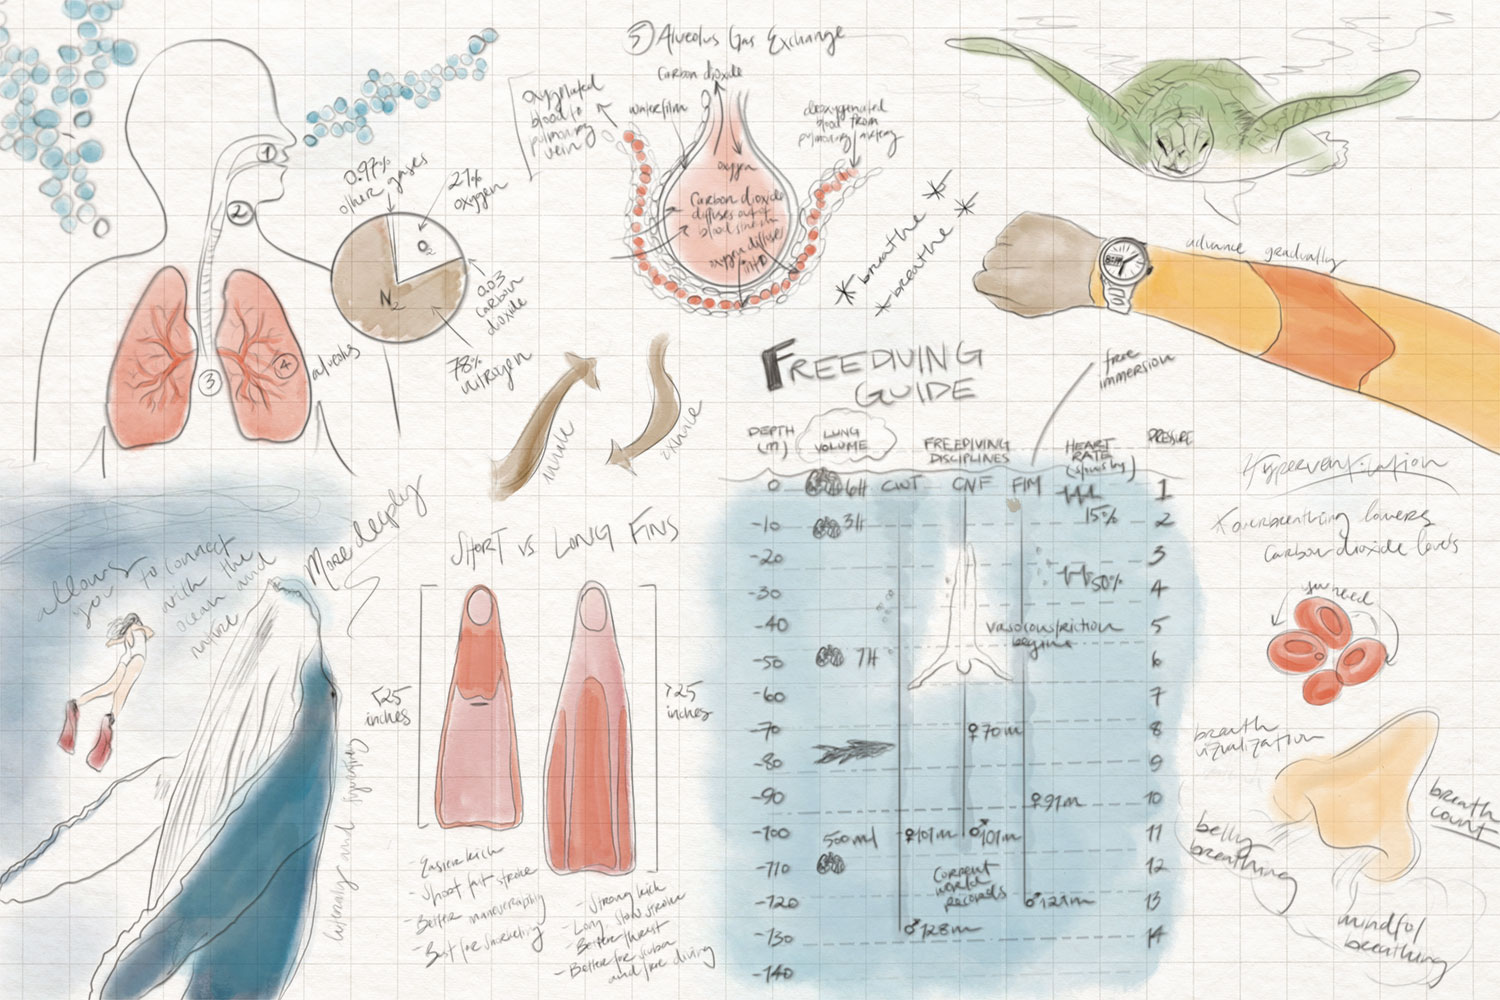 5 Alveolus Gas Exchange
Carbon dioxide
oxygenated
blood to
pulmonary
vein
waterfilm
deoxygenated
blood from
pulmonary artery
oxygen
Carbon dioxide
diffuses out of
oxygen diffuses
into
1
2
3
4
alveolus
0.97%
other gases
21%
oxygen
O2
N2
0.03
carbon
dioxide
78%
nitrogen
*breathe*
*breathe*
advance gradually
inhale
exhale
FREEDIVING
GUIDE
free
immersion
DEPTH
(m)
LUNG
VOLUME
FREEDIVING
DISCIPLINES
HEART
RATE
PRESSURE
0 6lt CWT CNF FIM 1
-10 3lt 15% 2
-20 3
-30 50% 4
-40 vasoconstriction 5
begins
-50 7lt 6
-60 7
-70 ♀70m 8
-80 9
-90 ♀91m 10
-100 500ml ♀101m ♂101m 11
-110 12
Current
world
records
-120 ♂121m 13
-130 ♂128m 14
-140
Hyperventilation
*overbreathing lowers
carbon dioxide levels
you need
breath
vizualization
breath
count
belly
breathing
mindful
breathing
allows
you to connect
with the
ocean and
nature
More deeply
internally and
SHORT VS LONG FINS
<25
inches
>25
inches
- Easier kick
- Short fast stroke
- Better maneuverability
- Best for snorkeling
- Strong kick
- Long slow stroke
- Better thrust
- Better for scuba
and free diving